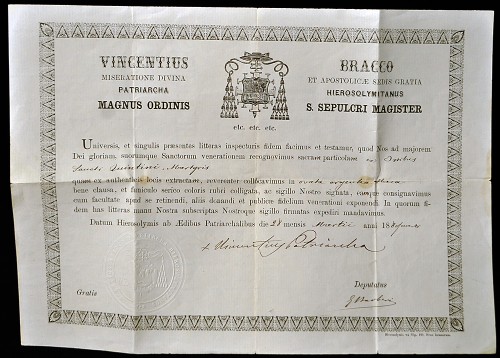 VINCENTIUS BRACCO
MISERATIONE DIVINA ET APOSTOLICÆ SEDIS GRATIA
PATRIARCHA HIEROSOLYMITANUS
MAGNUS ORDINIS S. SEPULCRI MAGISTER
etc. etc. etc.
Universis, et singulis præsentes litteras inspecturis fidem facimus et testamur, quod Nos ad majorem
Dei gloriam, suorumque Sanctorum venerationem recognovimus sacram particolam ex
Sancti Martyris
quam ex authenticis locis extractam, reverenter collocavimus in
bene clausa, et funiculo serico coloris rubri colligata, ac sigillo Nostro signata, eamque consignavimus
cum facultate apud se retinendi, aliis donandi et publicæ fidelium venerationi exponendi. In quorum fi-
dem has litteras manu Nostra subscriptas Nostroque sigillo firmatas expediri mandavimus.
Datum Hierosolymis ab Ædibus Patriarchalibus die mensis Martii anni 18
+ Vincentius Patriarcha
Gratis
Deputatus